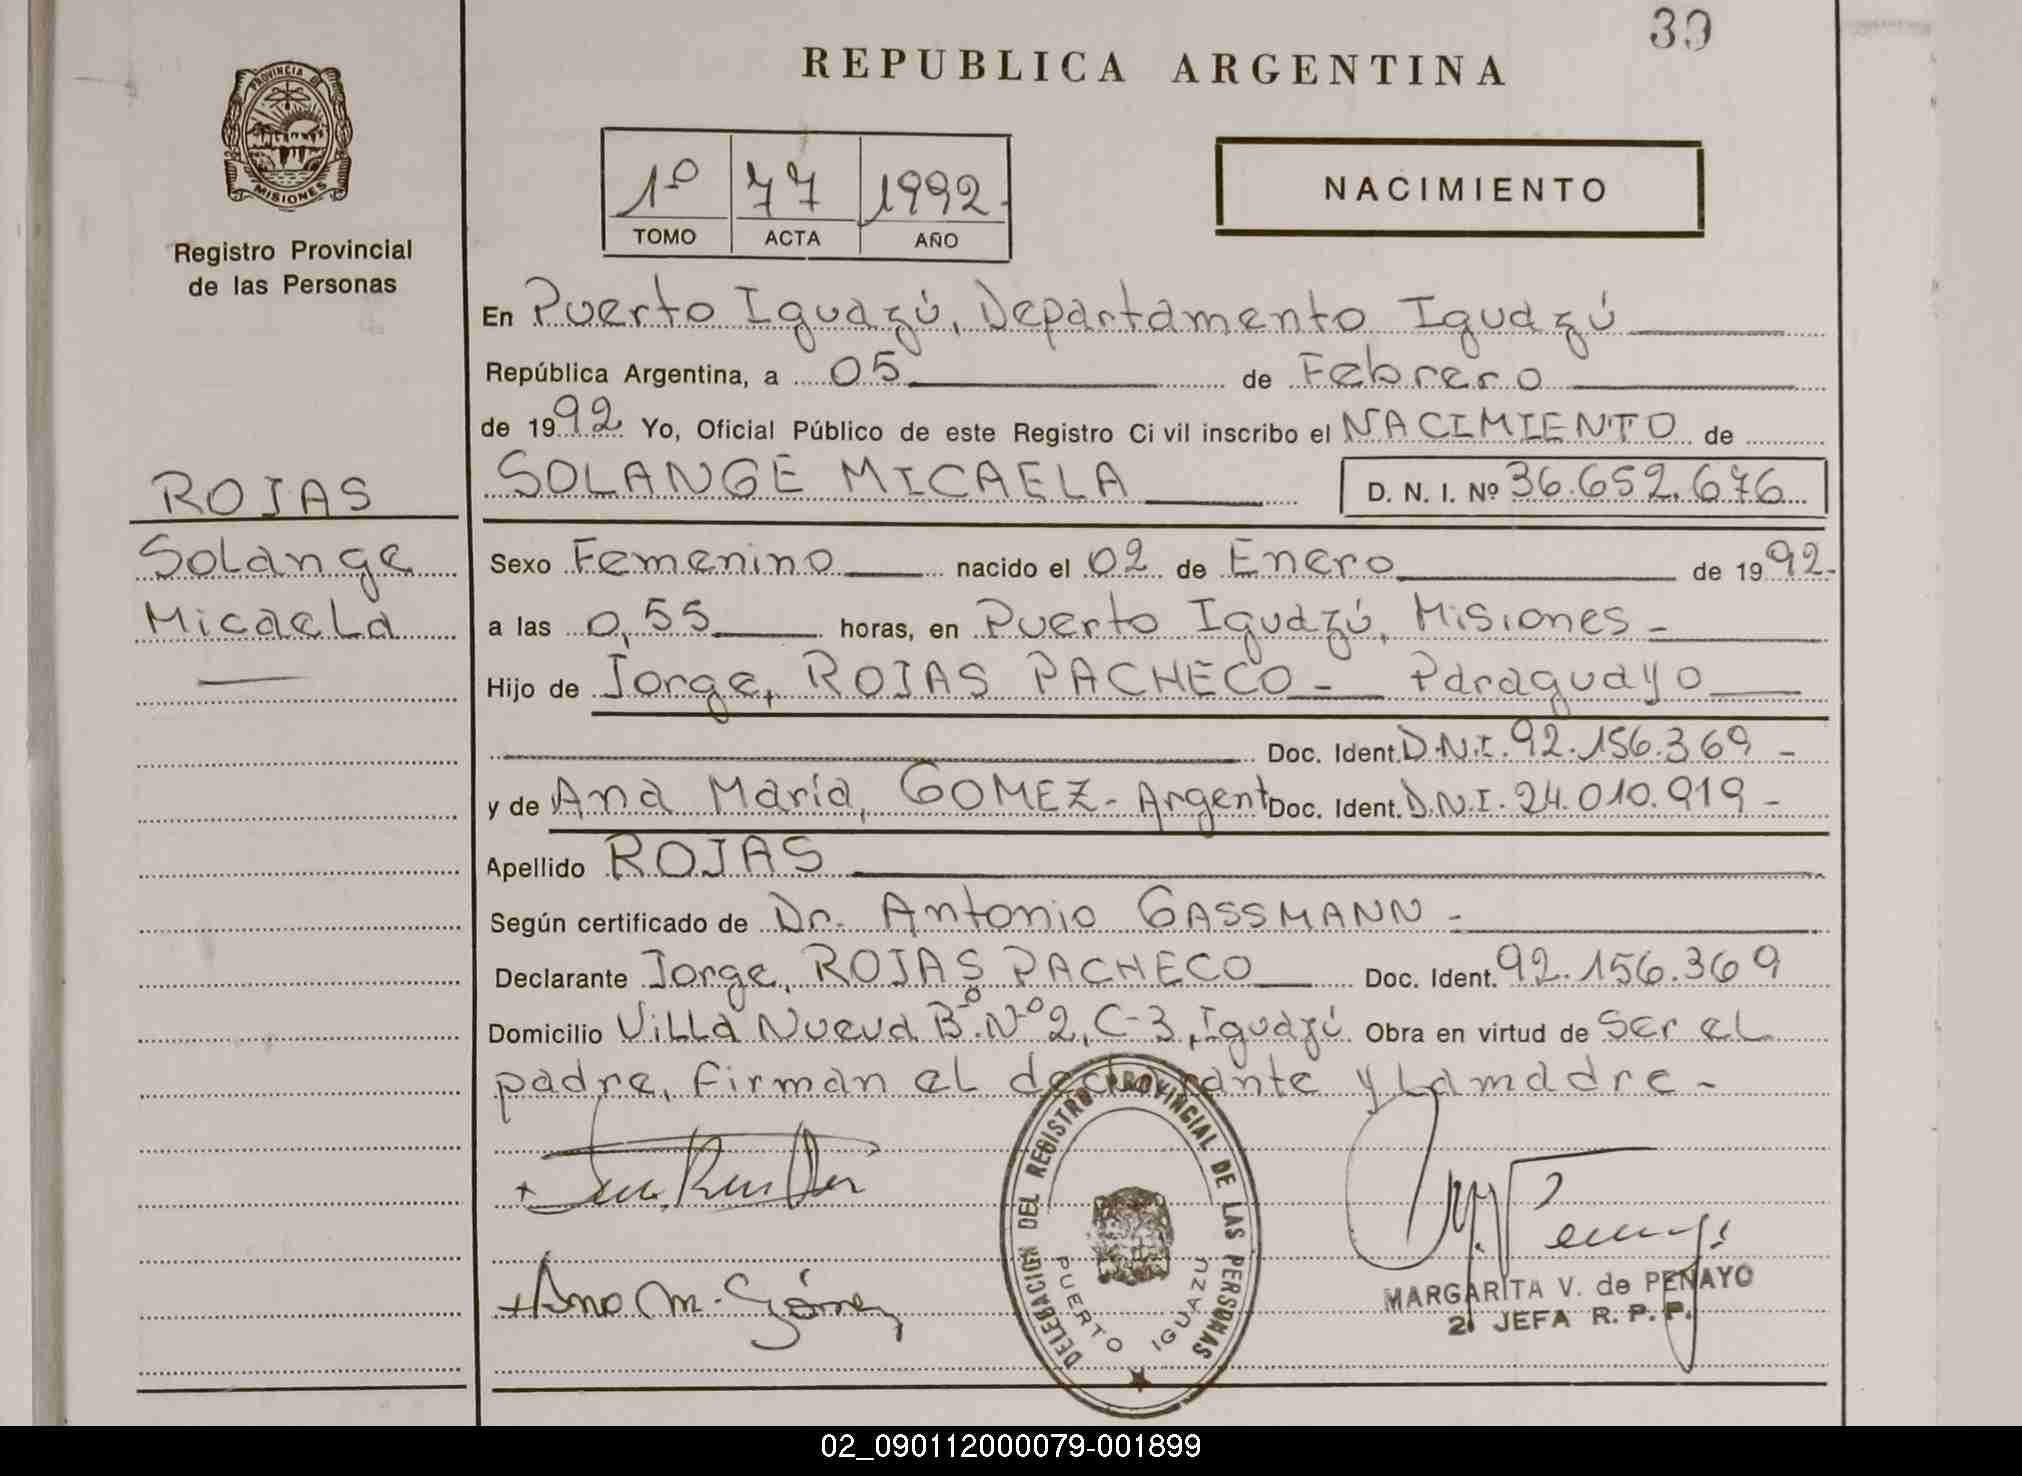 39
REPUBLICA ARGENTINA
PROVINCIA DE
MISIONES
Registro Provincial
de las Personas
1º 77 1992
TOMO ACTA AÑO
NACIMIENTO
En Puerto Iguazú, Departamento Iguazú
República Argentina, a 05 de Febrero
de 1992 Yo, Oficial Público de este Registro Ci vil inscribo el NACIMIENTO de
SOLANGE MICAELA D. N. I. Nº 36.652.676
ROJAS
Solange
Micaela
Sexo Femenino nacido el 02 de Enero de 1992-
a las 0,55 horas, en Puerto Iguazú, Misiones-
Hijo de Jorge, ROJAS PACHECO- Paraguayo
Doc. Ident. D.N.I. 92.156.369-
y de Ana María, GOMEZ- Argent Doc. Ident. D.N.I. 24.010.919-
Apellido ROJAS
Según certificado de Dr. Antonio GASSMANN-
Declarante Jorge, ROJAS PACHECO Doc. Ident. 92.156.369
Domicilio Villa Nueva Bº Nº 2, C-3, Iguazú Obra en virtud de ser el
padre, firman el declarante y la madre-
DELEGACION DEL REGISTRO PROVINCIAL DE LAS PERSONAS
PUERTO IGUAZU
+Ana M. Gómez
MARGARITA V. de PENAYO
2ª JEFA R. P. P.
02_090112000079-001899